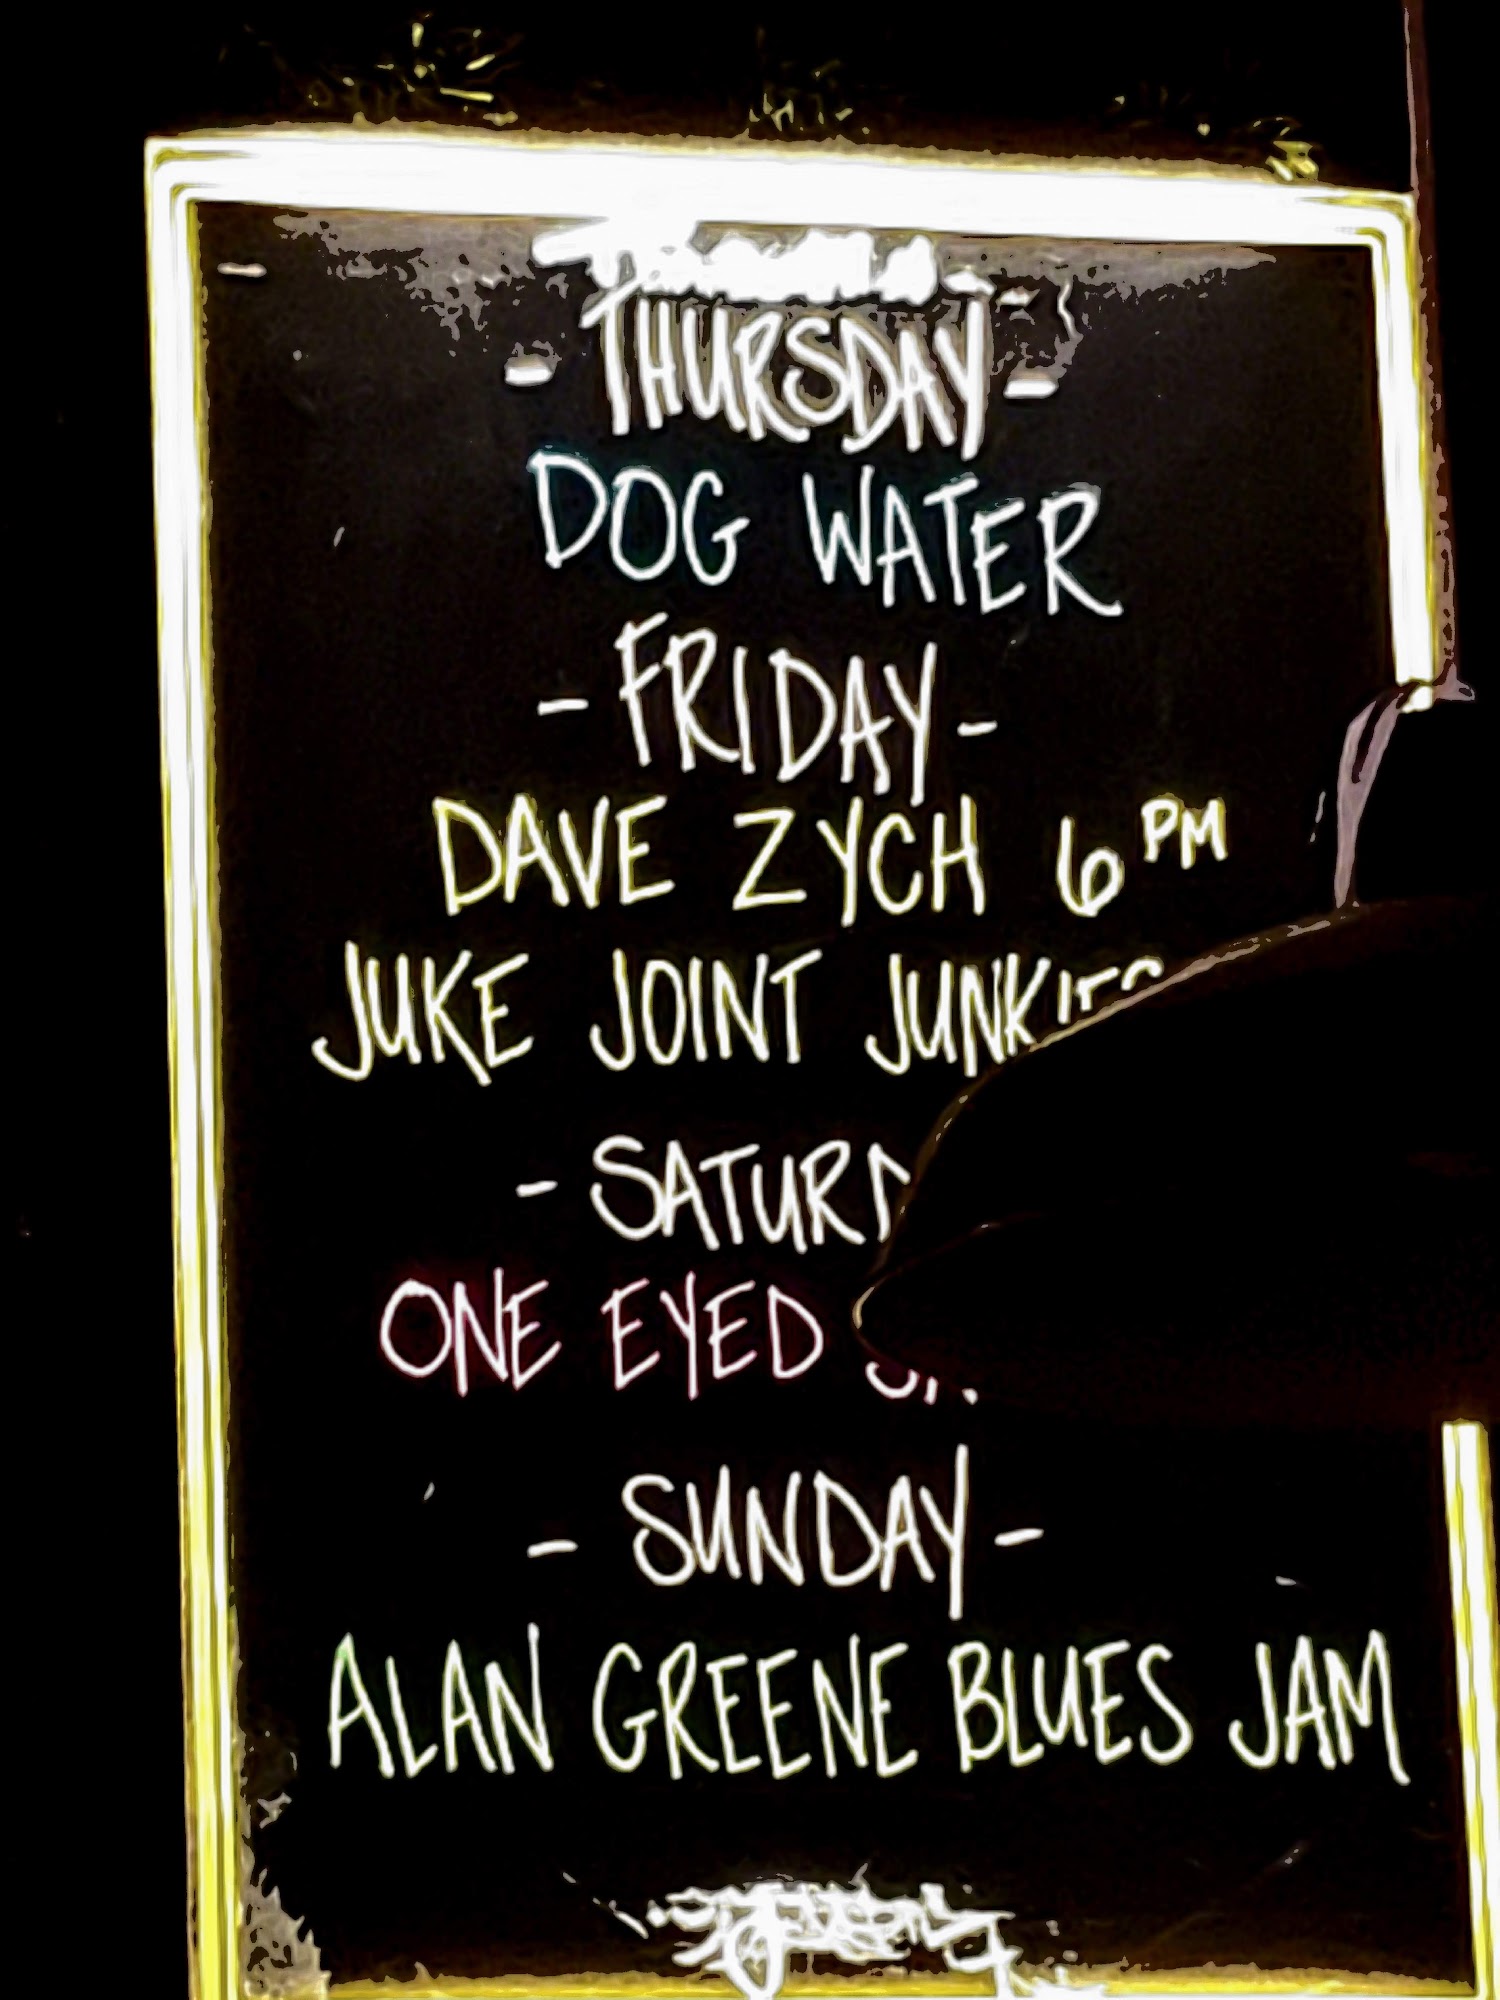 - THURSDAY -
DOG WATER
- FRIDAY -
DAVE ZYCH 6 PM
JUKE JOINT JUNKIES
- SATUR
ONE EYED
- SUNDAY -
ALAN GREENE BLUES JAM